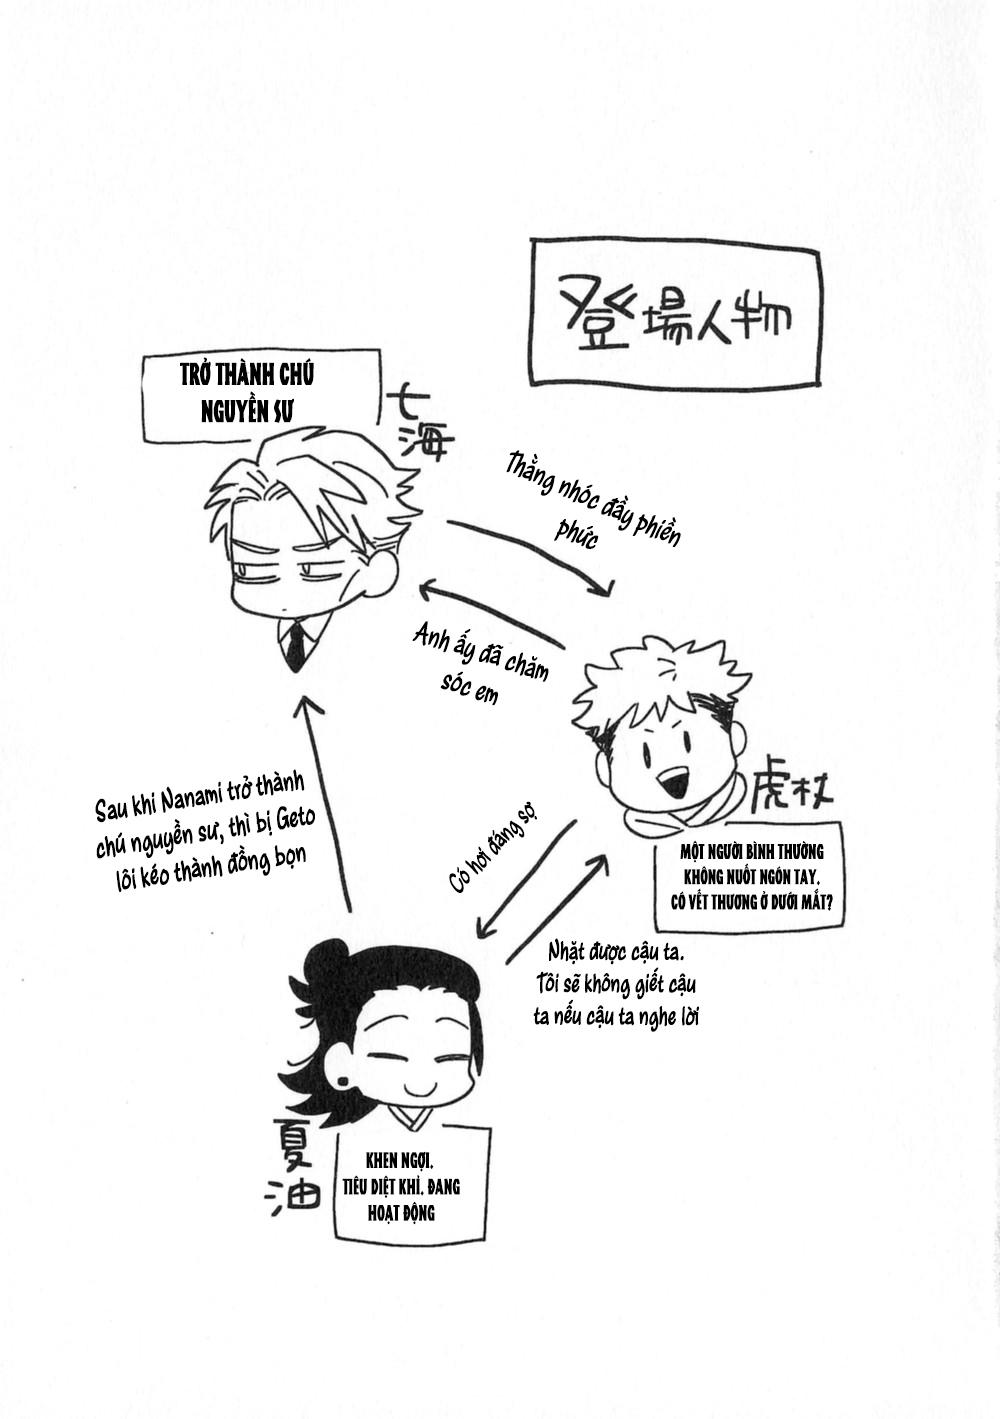 登場人物
TRỞ THÀNH CHÚ
NGUYỀN SƯ
七海
Thằng nhóc đầy phiền
phức
Anh ấy đã chăm
sóc em
虎杖
MỘT NGƯỜI BÌNH THƯỜNG
KHÔNG NUỐT NGÓN TAY.
CÓ VẾT THƯƠNG Ở DƯỚI MẮT?
Sau khi Nanami trở thành
chú nguyền sư, thì bị Geto
lôi kéo thành đồng bọn
Có hơi đáng sợ
Nhặt được cậu ta.
Tôi sẽ không giết cậu
ta nếu cậu ta nghe lời
夏油
KHEN NGỢI.
TIÊU DIỆT KHỈ. ĐANG
HOẠT ĐỘNG